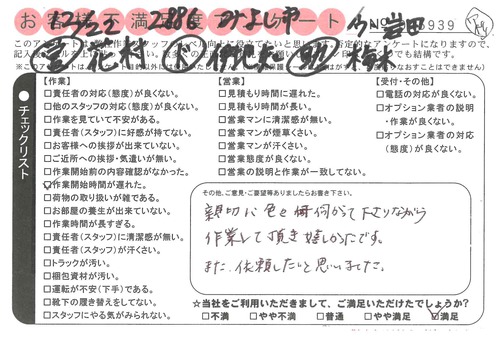 お客様不満足度アンケート
No
939
チェックリスト
【作業】
□責任者の対応(態度)が良くない。
□他のスタッフの対応(態度)が良くない。
□作業を見ていて不安がある。
□責任者(スタッフ)に好感が持てない。
□お客様への挨拶が出来ていない。
□ご近所への挨拶・気遣いが無い。
□作業開始前の内容確認がなかった。
☑作業開始時間が遅れた。
□荷物の取り扱いが雑である。
□お部屋の養生が出来ていない。
□作業時間が長すぎる。
□責任者(スタッフ)に清潔感が無い。
□責任者(スタッフ)が汗くさい。
□トラックが汚い。
□梱包資材が汚い。
□運転が不安(下手)である。
□靴下の履き替えをしてない。
□スタッフにやる気がみられない。
【営業】
□見積もりが時間に遅れた。
□見積もり時間が長い。
□営業マンに清潔感が無い。
□営業マンが煙草くさい。
□営業マンが汗くさい。
□営業態度が良くない。
□営業の説明と作業が一致してない。
【受付・その他】
□電話の対応が良くない。
□オプション業者の説明
・作業が良くない。
□オプション業者の対応
(態度)が良くない。
その他、ご意見・ご要望等ありましたらお書き下さい。
親切に色々 下さりながら
作業して頂き嬉しかったです。
また、依頼したいと思いました。
☆当社をご利用いただきまして、ご満足いただけたでしょうか?
□不満 □やや不満 □普通 □やや満足 ☑満足